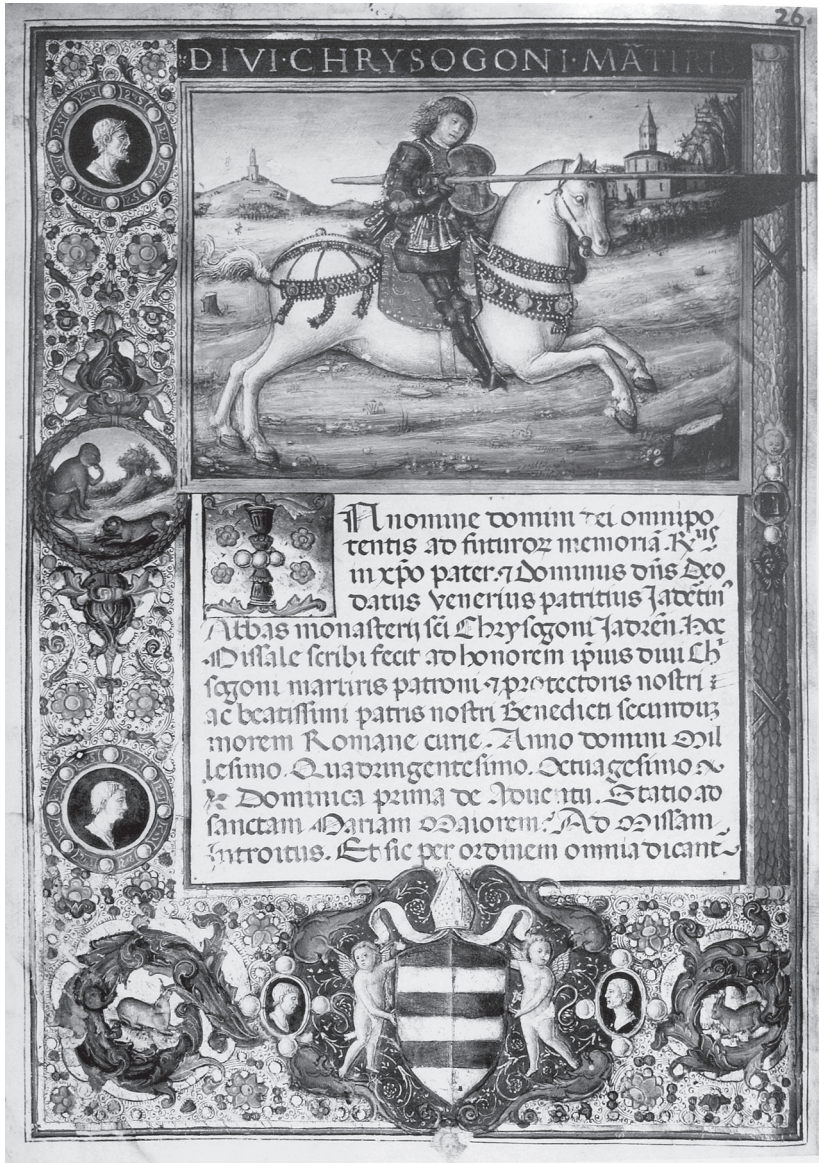 26.
DIVI·CHRYSOGONI·MÃTIRI
IN nomine domini dei omnipo
tentis ad futuroꝝ memoriã. R͂us
in xp̃o pater ⁊ Dominus dñs Deo
datus venerius patritius Jadẽtin
Abbas monasterij sc̃i Chrysogoni Jadreñ. Hoc
Missale scribi fecit ad honorem ip̃ius diui Ch
sogoni martiris patroni ⁊ protectoris nostri
ac beatissimi patris nostri Benedicti secunduꝫ
morem Romane curie. Anno domini Mil
lesimo. Quadringentesimo. Octuagesimo
Dominica prima de Aduentu. Statio ad
sanctam Mariam Maiorem. Ad Missam
Introitus. Et sic per ordinem omnia dicant